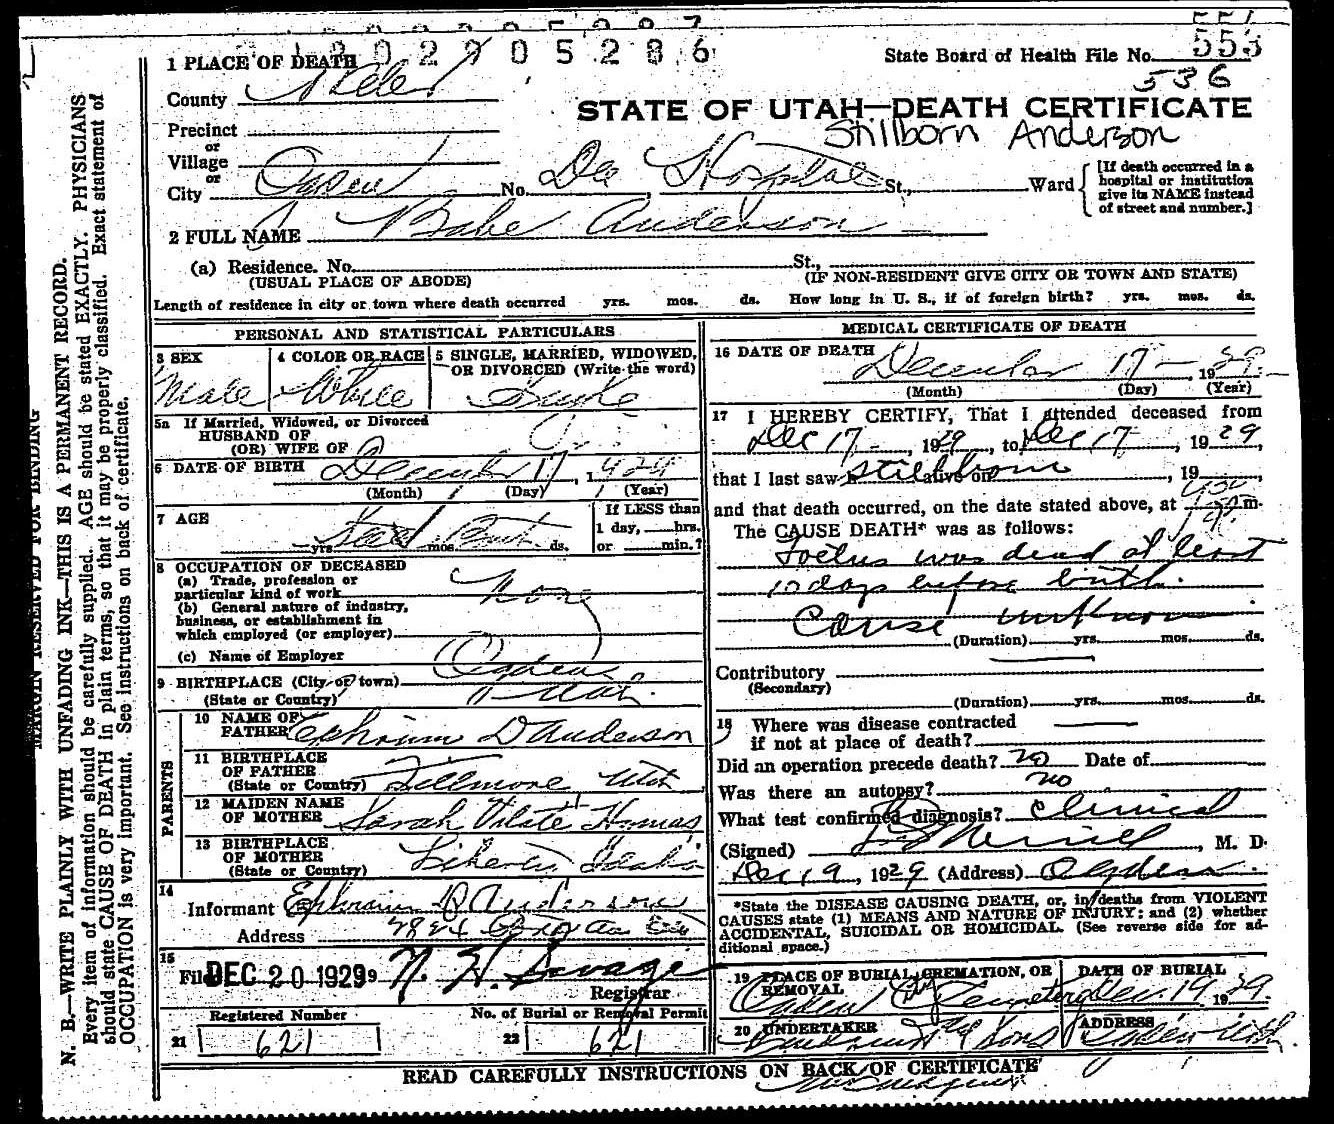 192905286
State Board of Health File No. 553
536
1 PLACE OF DEATH
County Weber
STATE OF UTAH—DEATH CERTIFICATE
Stillborn Anderson
Precinct
or
Village
or
City Ogden No. Dee Hospital St., Ward
[If death occurred in a hospital or institution give its NAME instead of street and number.]
2 FULL NAME Babe Anderson
(a) Residence. No. St.,
(USUAL PLACE OF ABODE) (IF NON-RESIDENT GIVE CITY OR TOWN AND STATE)
Length of residence in city or town where death occurred yrs. mos. ds. How long in U. S., if of foreign birth? yrs. mos. ds.
PERSONAL AND STATISTICAL PARTICULARS
3 SEX
Male
4 COLOR OR RACE
White
5 SINGLE, MARRIED, WIDOWED, OR DIVORCED (Write the word)
Single
5a If Married, Widowed, or Divorced
HUSBAND OF
(OR) WIFE OF
6 DATE OF BIRTH December 17, 1929
(Month) (Day) (Year)
7 AGE
yrs. mos. ds.
If LESS than
1 day, hrs.
or min.?
8 OCCUPATION OF DECEASED
(a) Trade, profession or
particular kind of work None
(b) General nature of industry,
business, or establishment in
which employed (or employer)
(c) Name of Employer
9 BIRTHPLACE (City or town) Ogden
(State or Country) Utah.
PARENTS
10 NAME OF FATHER Ephraim D Anderson
11 BIRTHPLACE OF FATHER (State or Country) Fillmore Utah
12 MAIDEN NAME OF MOTHER Sarah Vilate
13 BIRTHPLACE OF MOTHER (State or Country) Liberty, Idaho
14
Informant Ephraim D Anderson
Address
15
Filed DEC 20 1929 Savage
Registrar
Registered Number
21 621
No. of Burial or Removal Permit
22 621
MEDICAL CERTIFICATE OF DEATH
16 DATE OF DEATH December 17 – 1929.
(Month) (Day) (Year)
17 I HEREBY CERTIFY, That I attended deceased from
Dec 17, 1929, to Dec 17, 1929,
that I last saw h alive on stillborn, 19
and that death occurred, on the date stated above, at m.
The CAUSE DEATH* was as follows:
Foetus was dead at least
10 days before birth.
Cause unknown
(Duration) yrs. mos. ds.
Contributory
(Secondary)
(Duration) yrs. mos. ds.
18 Where was disease contracted
if not at place of death?
Did an operation precede death? no Date of
Was there an autopsy? no
What test confirmed diagnosis? Clinical
(Signed) Merrill, M. D.
Dec 19, 1929 (Address) Ogden.
*State the DISEASE CAUSING DEATH, or, in deaths from VIOLENT
CAUSES state (1) MEANS AND NATURE OF INJURY: and (2) whether
ACCIDENTAL, SUICIDAL OR HOMICIDAL. (See reverse side for ad-
ditional space.)
19 PLACE OF BURIAL, CREMATION, OR REMOVAL
Ogden City Cemetery
DATE OF BURIAL
Dec. 19 1929.
20 UNDERTAKER
& Sons
ADDRESS
Ogden Utah
READ CAREFULLY INSTRUCTIONS ON BACK OF CERTIFICATE
MARGIN RESERVED FOR BINDING
N. B.—WRITE PLAINLY WITH UNFADING INK—THIS IS A PERMANENT RECORD.
Every item of information should be carefully supplied. AGE should be stated EXACTLY. PHYSICIANS
should state CAUSE OF DEATH in plain terms, so that it may be properly classified. Exact statement of
OCCUPATION is very important. See instructions on back of certificate.